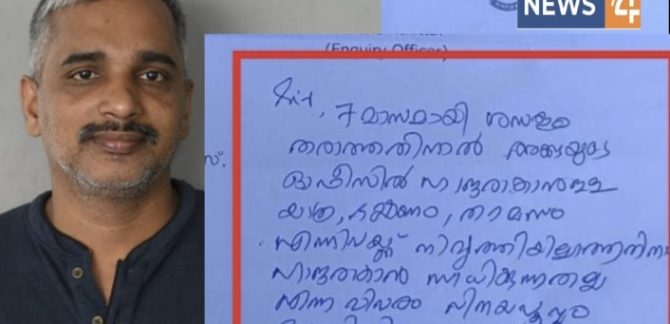 NEWS 24
(Enquiry Officer)
Sir, 7 മാസമായി ശമ്പളം
തരാത്തതിനാൽ അങ്ങയുടെ
ഓഫീസിൽ ഹാജരാകാനുള്ള
സ്.
യാത്ര, ഭക്ഷണം, താമസം
എന്നിവയ്ക്ക് നിവൃത്തിയില്ലാത്തതിനാ
ഹാജരാകാൻ സാധിക്കുന്നതല്ല
എന്ന വിവരം വിനയപൂർവ്വം